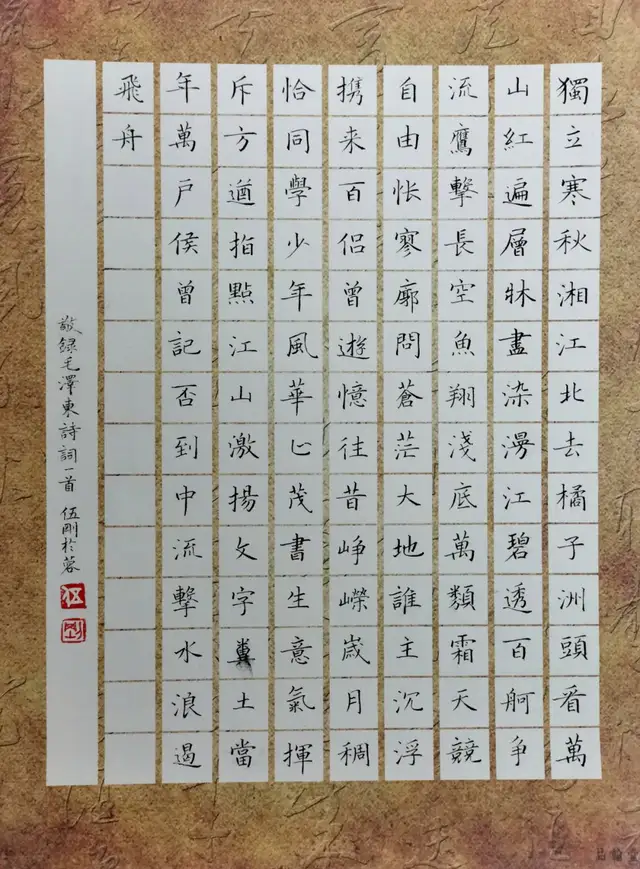 獨立寒秋湘江北去橘子洲頭看萬
山紅遍層林盡染漫江碧透百舸爭
流鷹擊長空魚翔淺底萬類霜天競
自由悵寥廓問蒼茫大地誰主沉浮
携来百侶曾遊憶往昔崢嶸歲月稠
恰同學少年風華正茂書生意氣揮
斥方遒指點江山激揚文字糞土當
年萬戶侯曾記否到中流擊水浪遏
飛舟
敬録毛澤東詩詞一首 伍剛於蓉
伍
剛